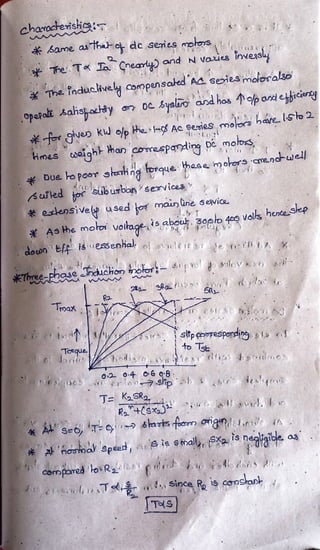 characteristics:-
* Same as that of dc series motors
* The T ∝ Ia² (nearly) and N varies inversly
* The inductively compensated AC series motor also
operate satisfactily on DC system and has ↑ o/p and efficiency
* for given KW o/p the 1-ϕ AC series motors have 1.5 to 2
times weight than corresponding DC motors.
* Due to poor starting torque these motors are not well
suited for suburban services
* extensively used for mainline service
* As the motor voltage is about 300 to 400 volts hence step
down t/f is essential
* Three-phase Induction motor:-
R2 2R2 3R2 5R2
Tmax
↑
Torque
slip corresponding
to Tst
0.2 0.4 0.6 0.8
→ slip
T = K2SR2 / R2² + (SX2)²
* At S=0, T=0, → starts from origin
* At normal speed, S is small, SX2 is negligible as
compared to R2
T ∝ S/R2 ∴ since R2 is constant
T ∝ S